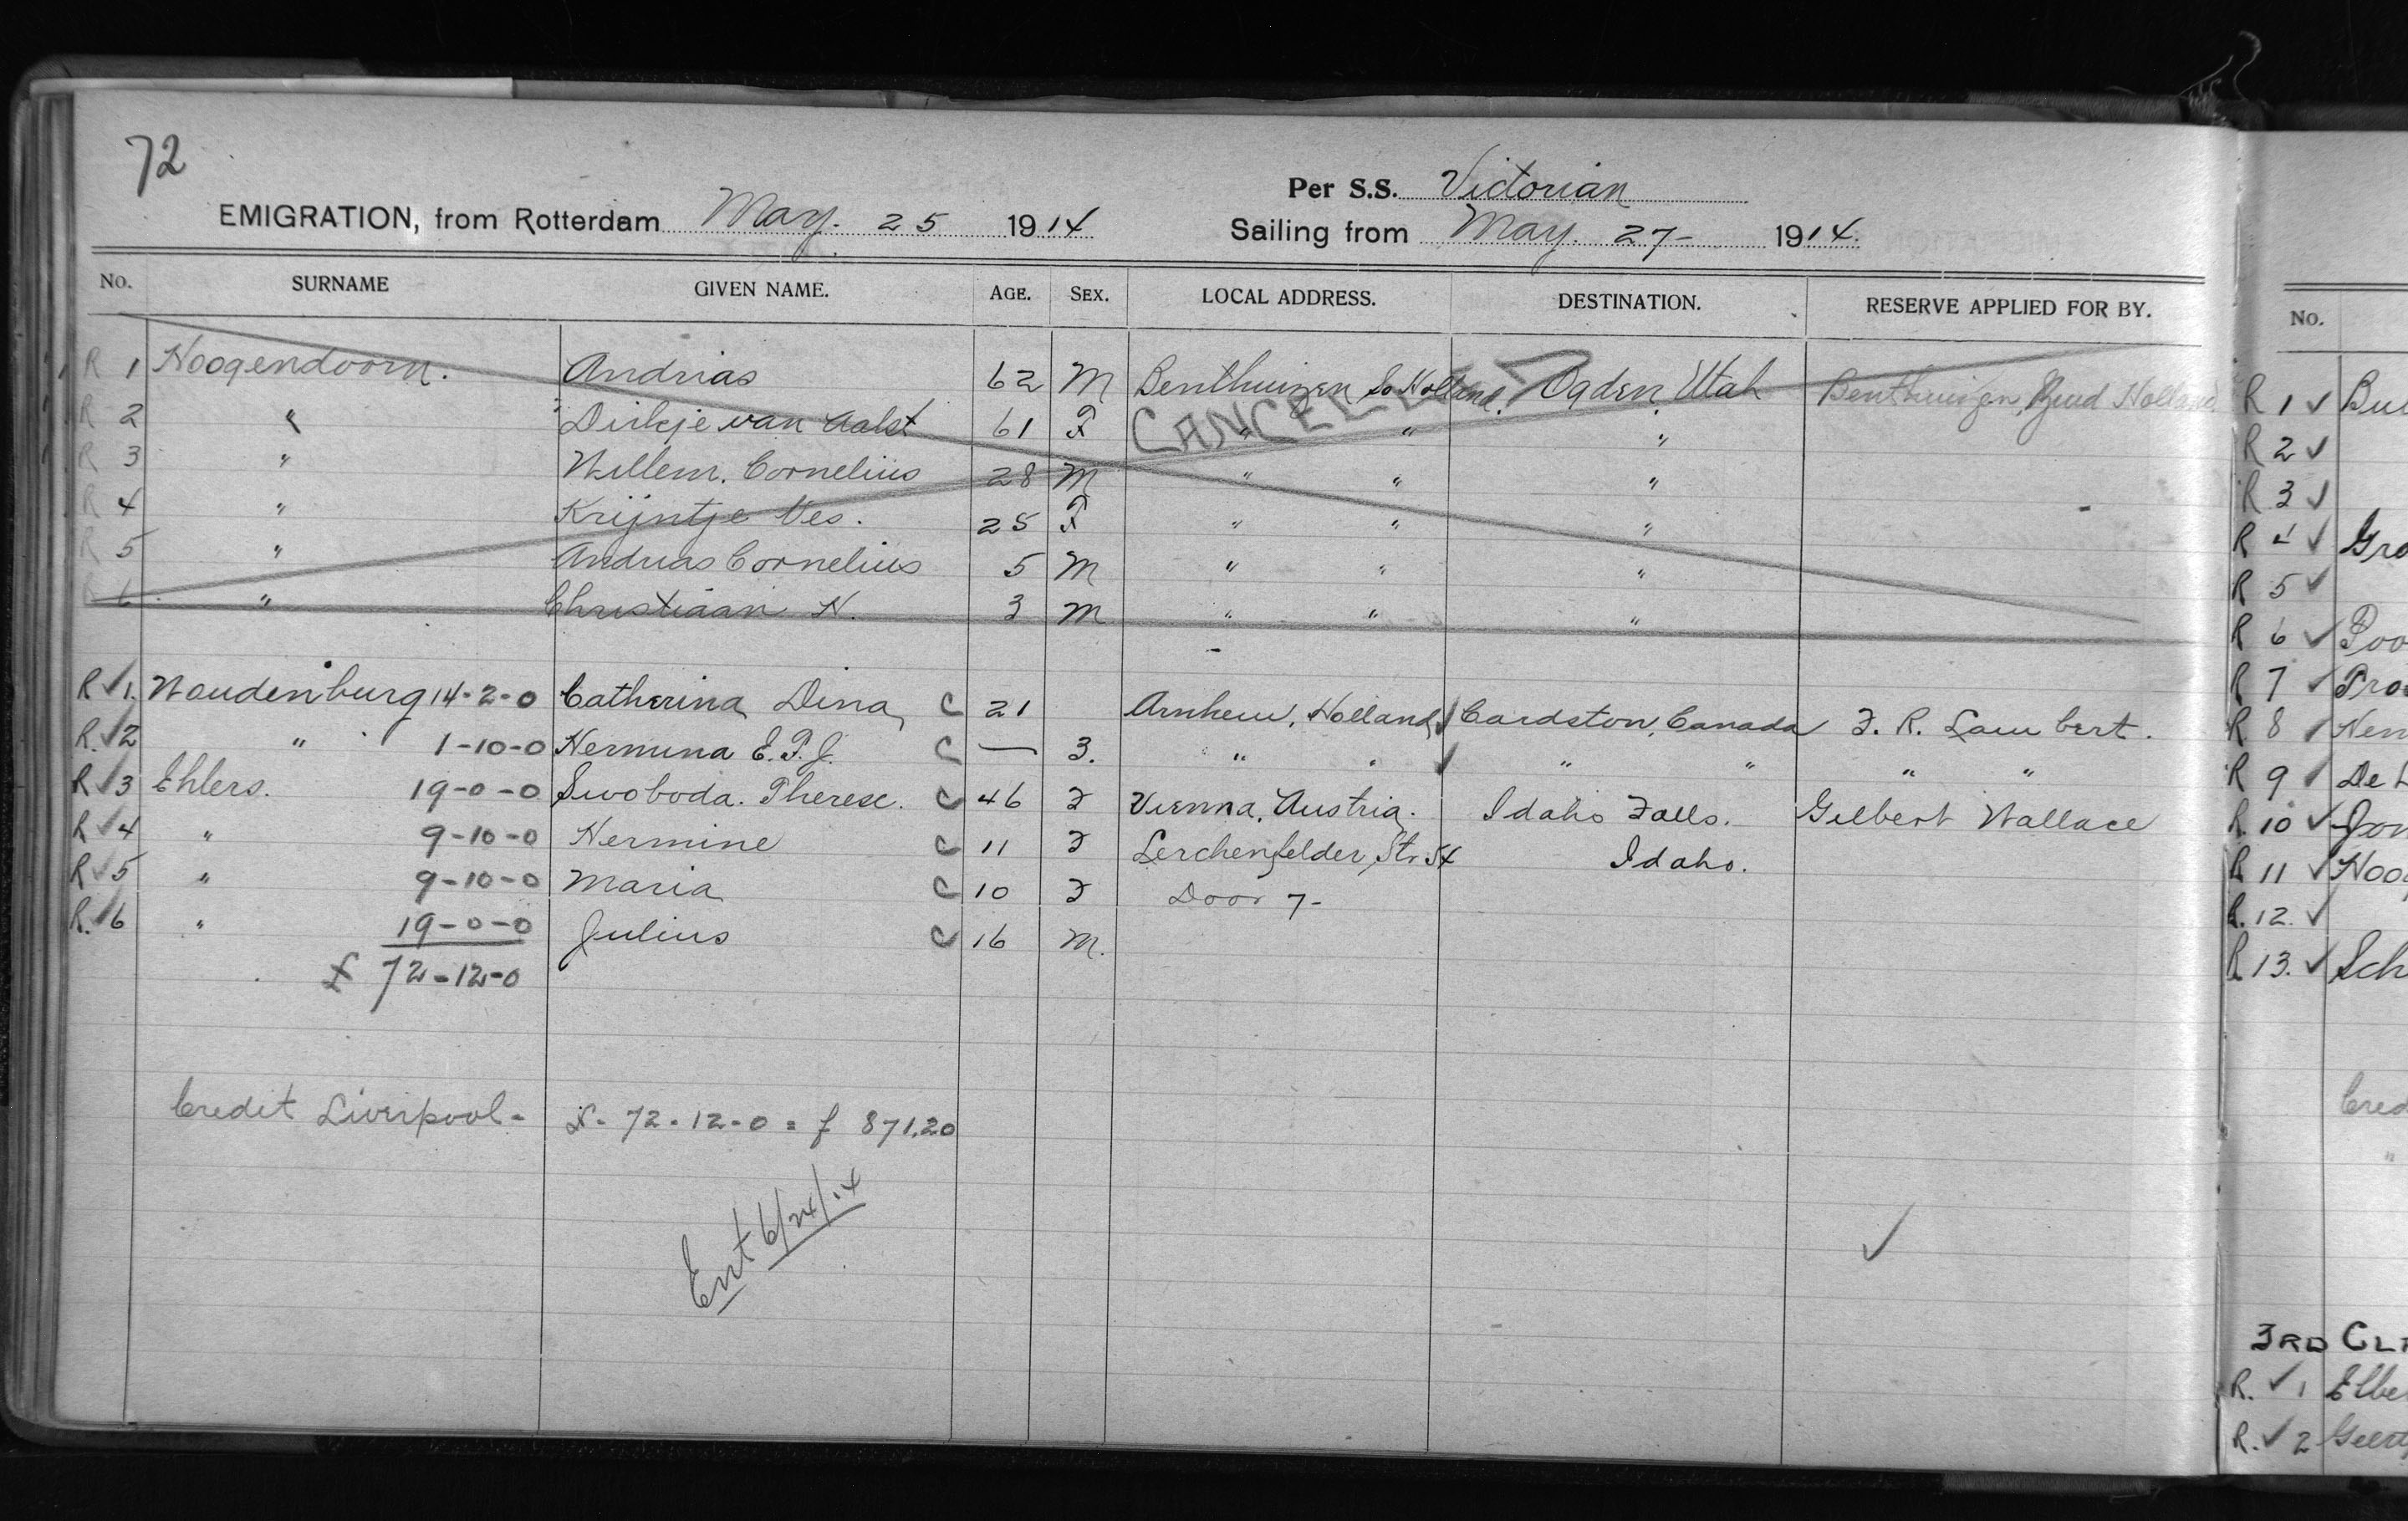 72
Per S.S. Victorian
EMIGRATION, from Rotterdam May. 25 1914 Sailing from May. 27- 1914.
No. SURNAME GIVEN NAME. AGE. SEX. LOCAL ADDRESS. DESTINATION. RESERVE APPLIED FOR BY.
R 1 Hoogendoorn. Andrias 62 M Benthuizen So Holland. Ogden, Utah Benthuizen, Zuid Holland
CANCELLED
R 2 " Dirkje van Aalst 61 F " " "
R 3 " Willem. Cornelius 28 M " " "
R 4 " Krijntje Ves. 25 F " " "
R 5 " Andrias Cornelius 5 M " " "
R 6 " Christiaan H. 3 M " " "
R ✓ 1. Woudenburg 14-2-0 Catherina Dina C 21 Arnhem, Holland ✓ Cardston, Canada F. R. Lambert.
R. ✓ 2 " 1-10-0 Hermina E. P. J. C — F. " " ✓ " " " "
R ✓ 3 Ehlers. 19-0-0 Swoboda. Therese. C 46 F Vienna, Austria. Idaho Falls. Gilbert Wallace
R ✓ 4 " 9-10-0 Hermine C 11 F Lerchenfelder Str. 54 Idaho.
R ✓ 5 " 9-10-0 Maria C 10 F Door 7-
R. ✓ 6 " 19-0-0 Julius C 16 M.
£ 72-12-0
Credit Liverpool - £- 72-12-0 = f 871,20
Ent 6/24/14
✓
No.
R 1 ✓
R 2 ✓
R 3 ✓
R 4 ✓ Gro
R 5 ✓
R 6 ✓
R 7 ✓ Pro
R 8 ✓ Hen
R 9 ✓ De
R. 10 ✓
R 11 ✓ Hoo
R. 12. ✓
R 13. ✓ Sch
Cred
"
3RD CL
R. ✓ 1 Elbe
R. ✓ 2 Geert